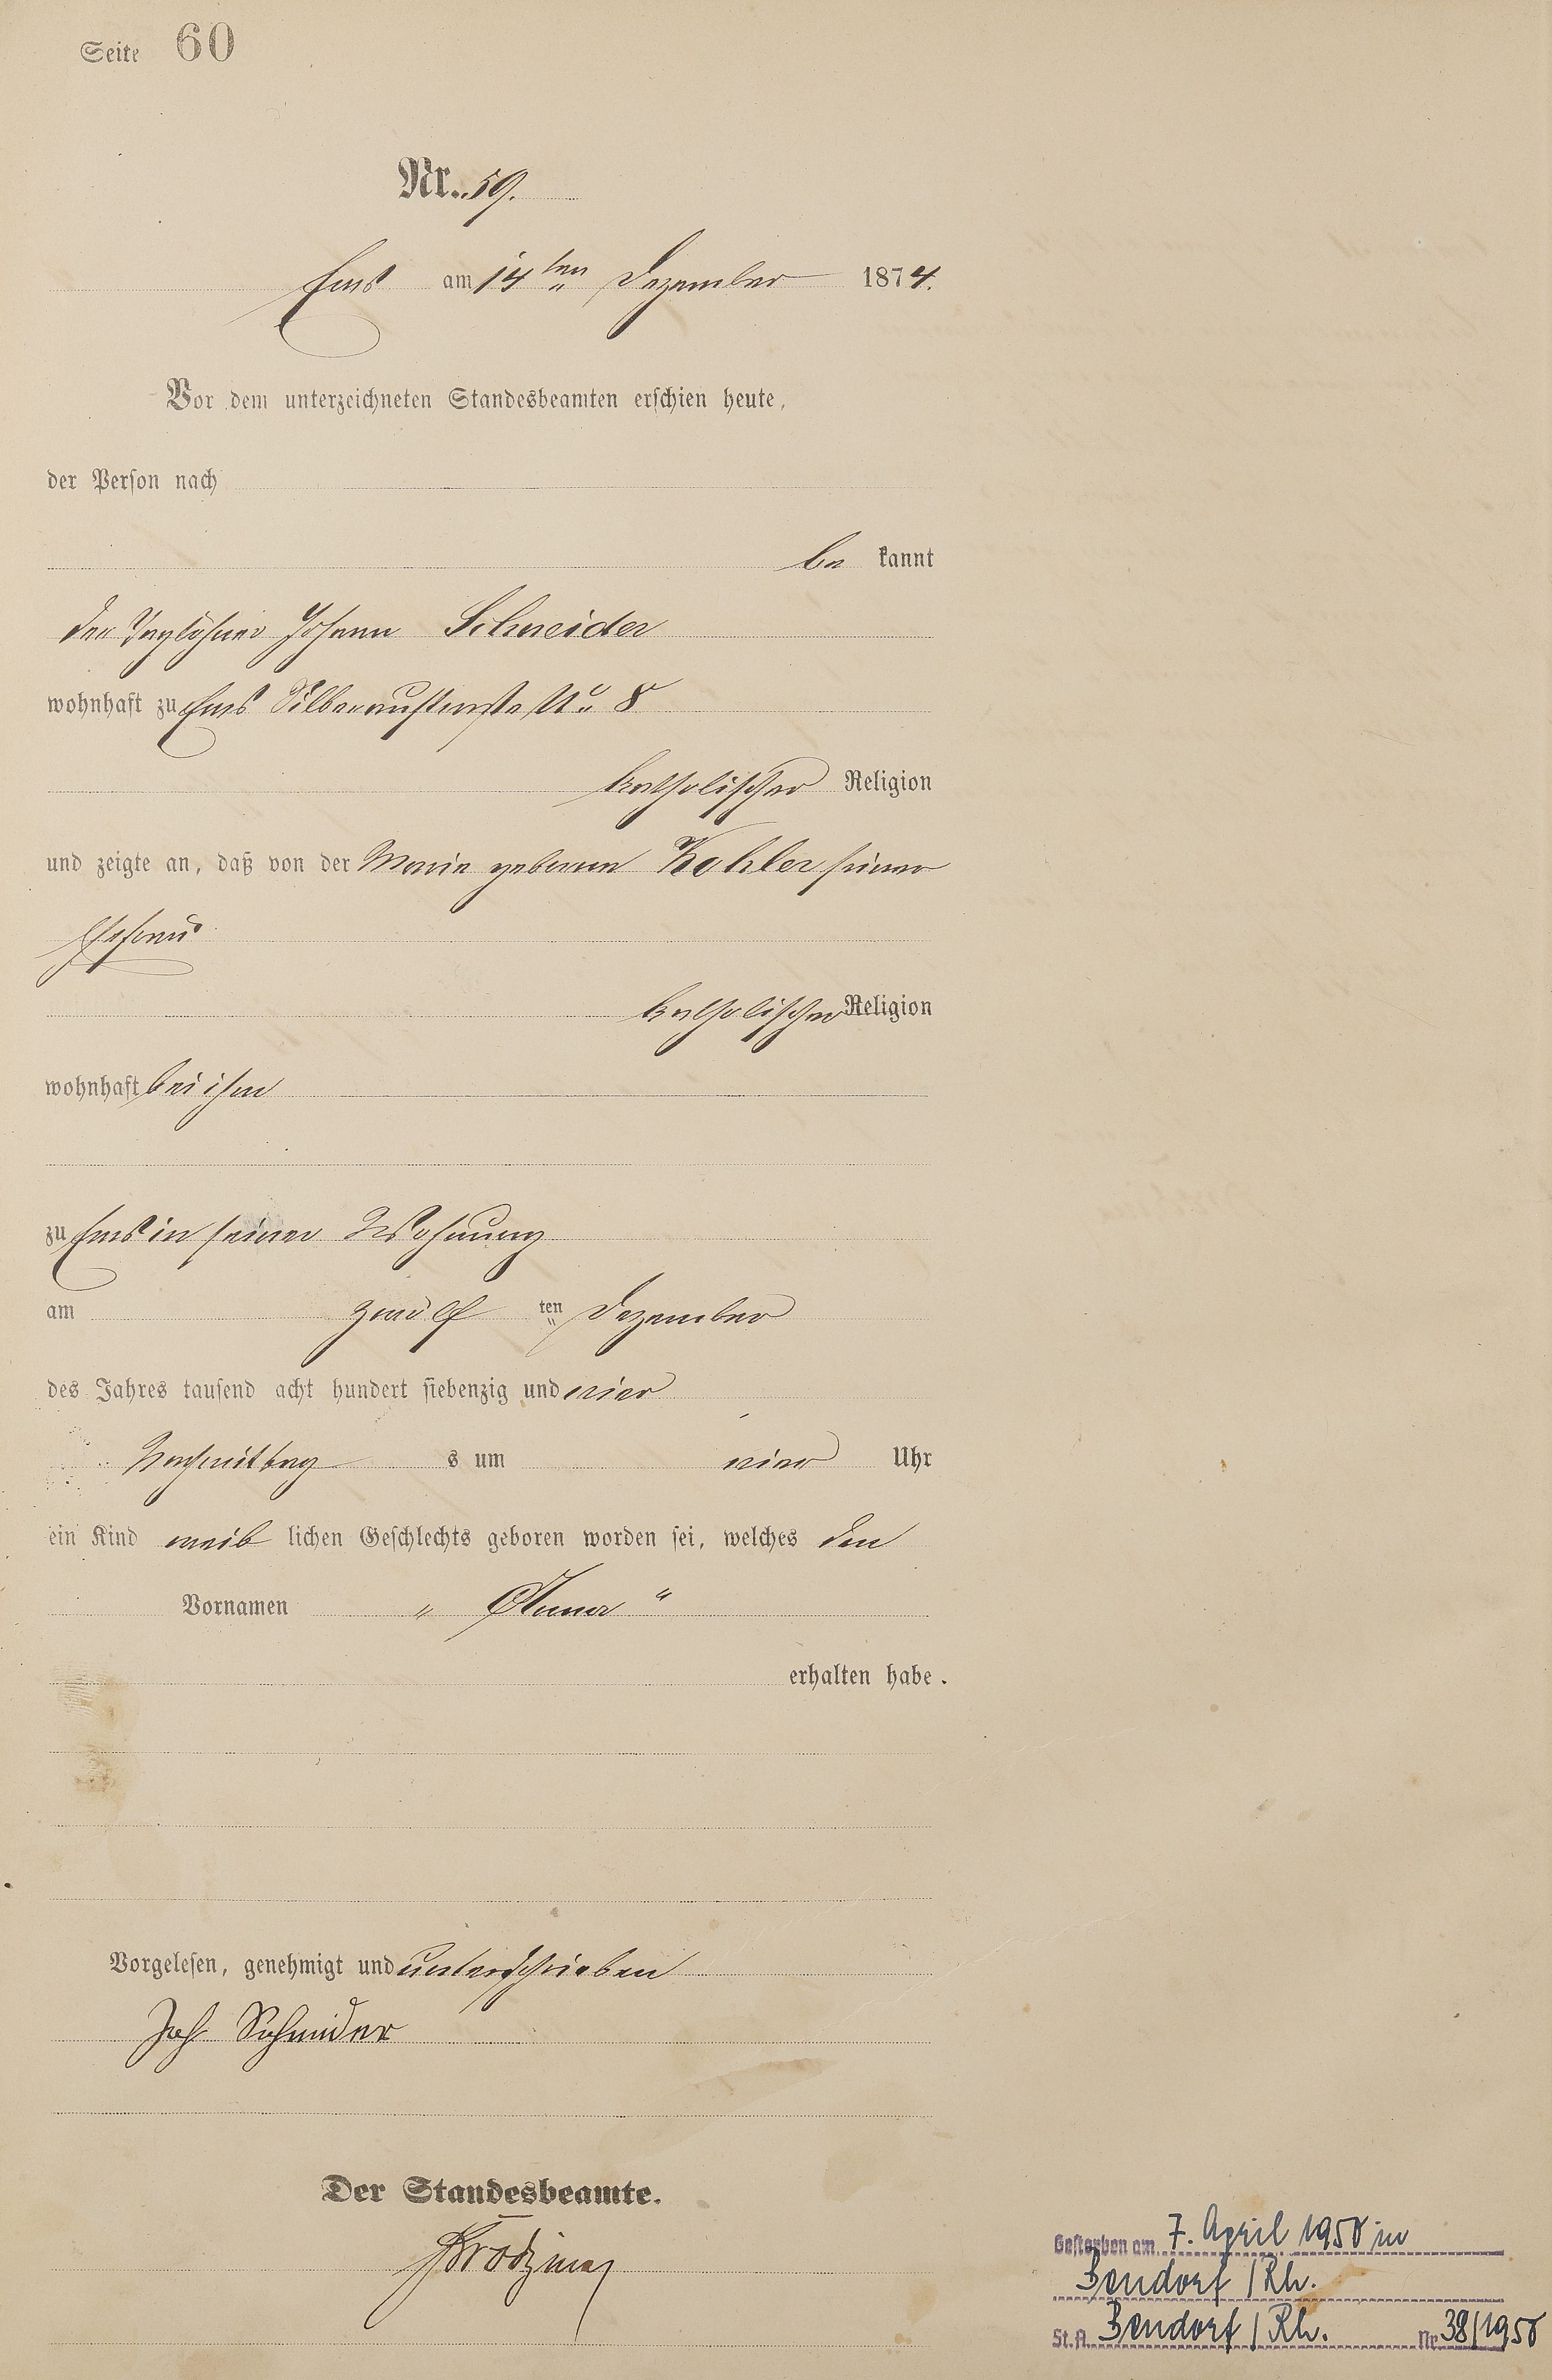 Seite 60
Nr. 59.
Ems am 14ten Dezember 1874.
Vor dem unterzeichneten Standesbeamten erschien heute,
der Person nach
be kannt
der Taglöhner Johann Schneider
wohnhaft zu Ems Silberaustraße No 8
katholischer Religion
und zeigte an, daß von der Marie geborenen Kohler seiner
Ehefrau
katholischer Religion
wohnhaft bei ihm
zu Ems in seiner Wohnung
am zwölf ten Dezember
des Jahres tausend acht hundert siebenzig und vier
Nachmittag s um vier Uhr
ein Kind weib lichen Geschlechts geboren worden sei, welches den
Vornamen „ Anna “
erhalten habe.
Vorgelesen, genehmigt und unterschrieben
Joh Schneider
Der Standesbeamte.
Gestorben am 7. April 1950 in
Bendorf / Rh.
St. A. Bendorf / Rh. Nr. 38/1950